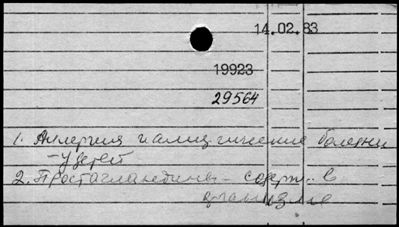 14.02.83
19923
29564
1. Аллергия и аллергические болезни
- у детей
2. Простагландины - содерж. в
организме